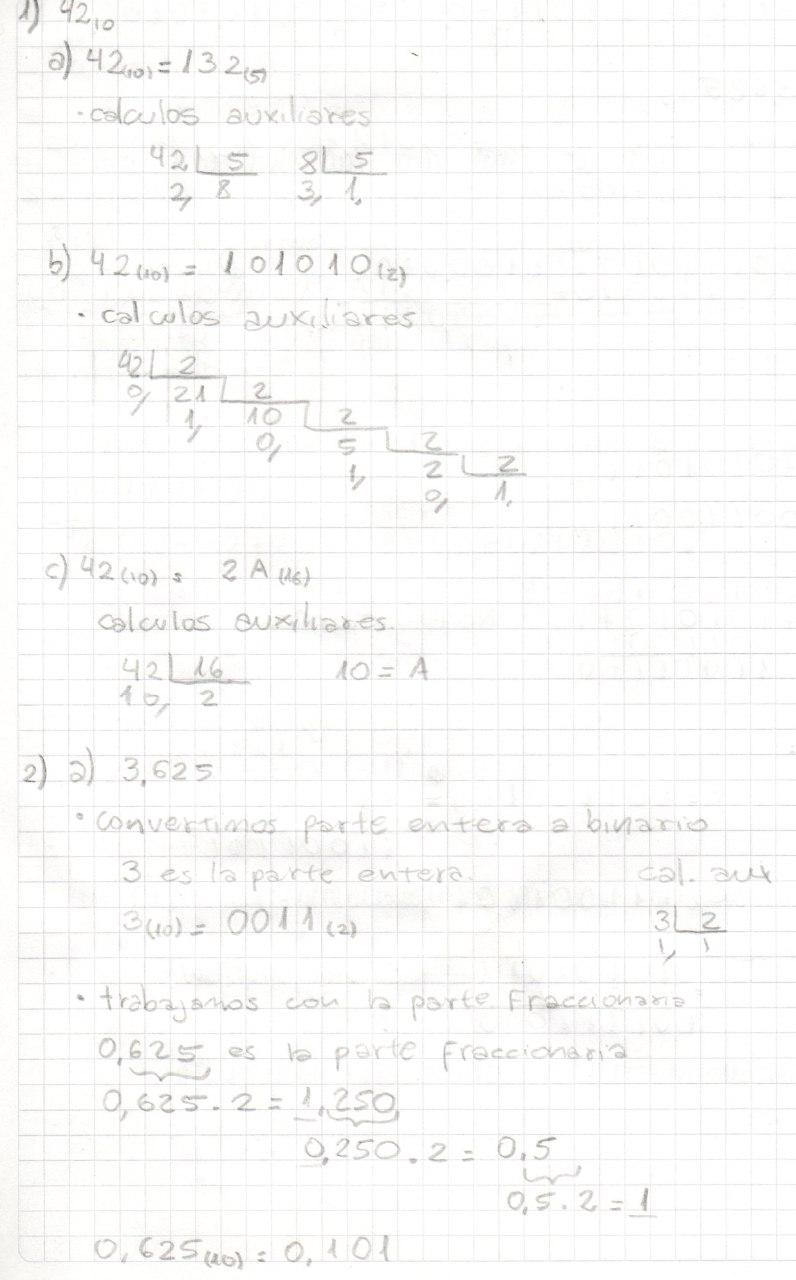 1) 42₁₀
a) 42(10) = 132(5)
· calculos auxiliares
42 | 5 8 | 5
2, 8 3, 1,
b) 42(10) = 101010(2)
· calculos auxiliares
42 | 2
0, 21 | 2
1, 10 | 2
0, 5 | 2
1, 2 | 2
0, 1,
c) 42(10) = 2A(16)
calculos auxiliares.
42 | 16 10 = A
10, 2
2) a) 3,625
· convertimos parte entera a binario
3 es la parte entera. cal. aux
3(10) = 0011(2) 3 | 2
1, 1
· trabajamos con la parte Fraccionaria
0,625 es la parte fraccionaria
0,625 . 2 = 1,250
0,250 . 2 = 0,5
0,5 . 2 = 1
0,625(10) = 0,101